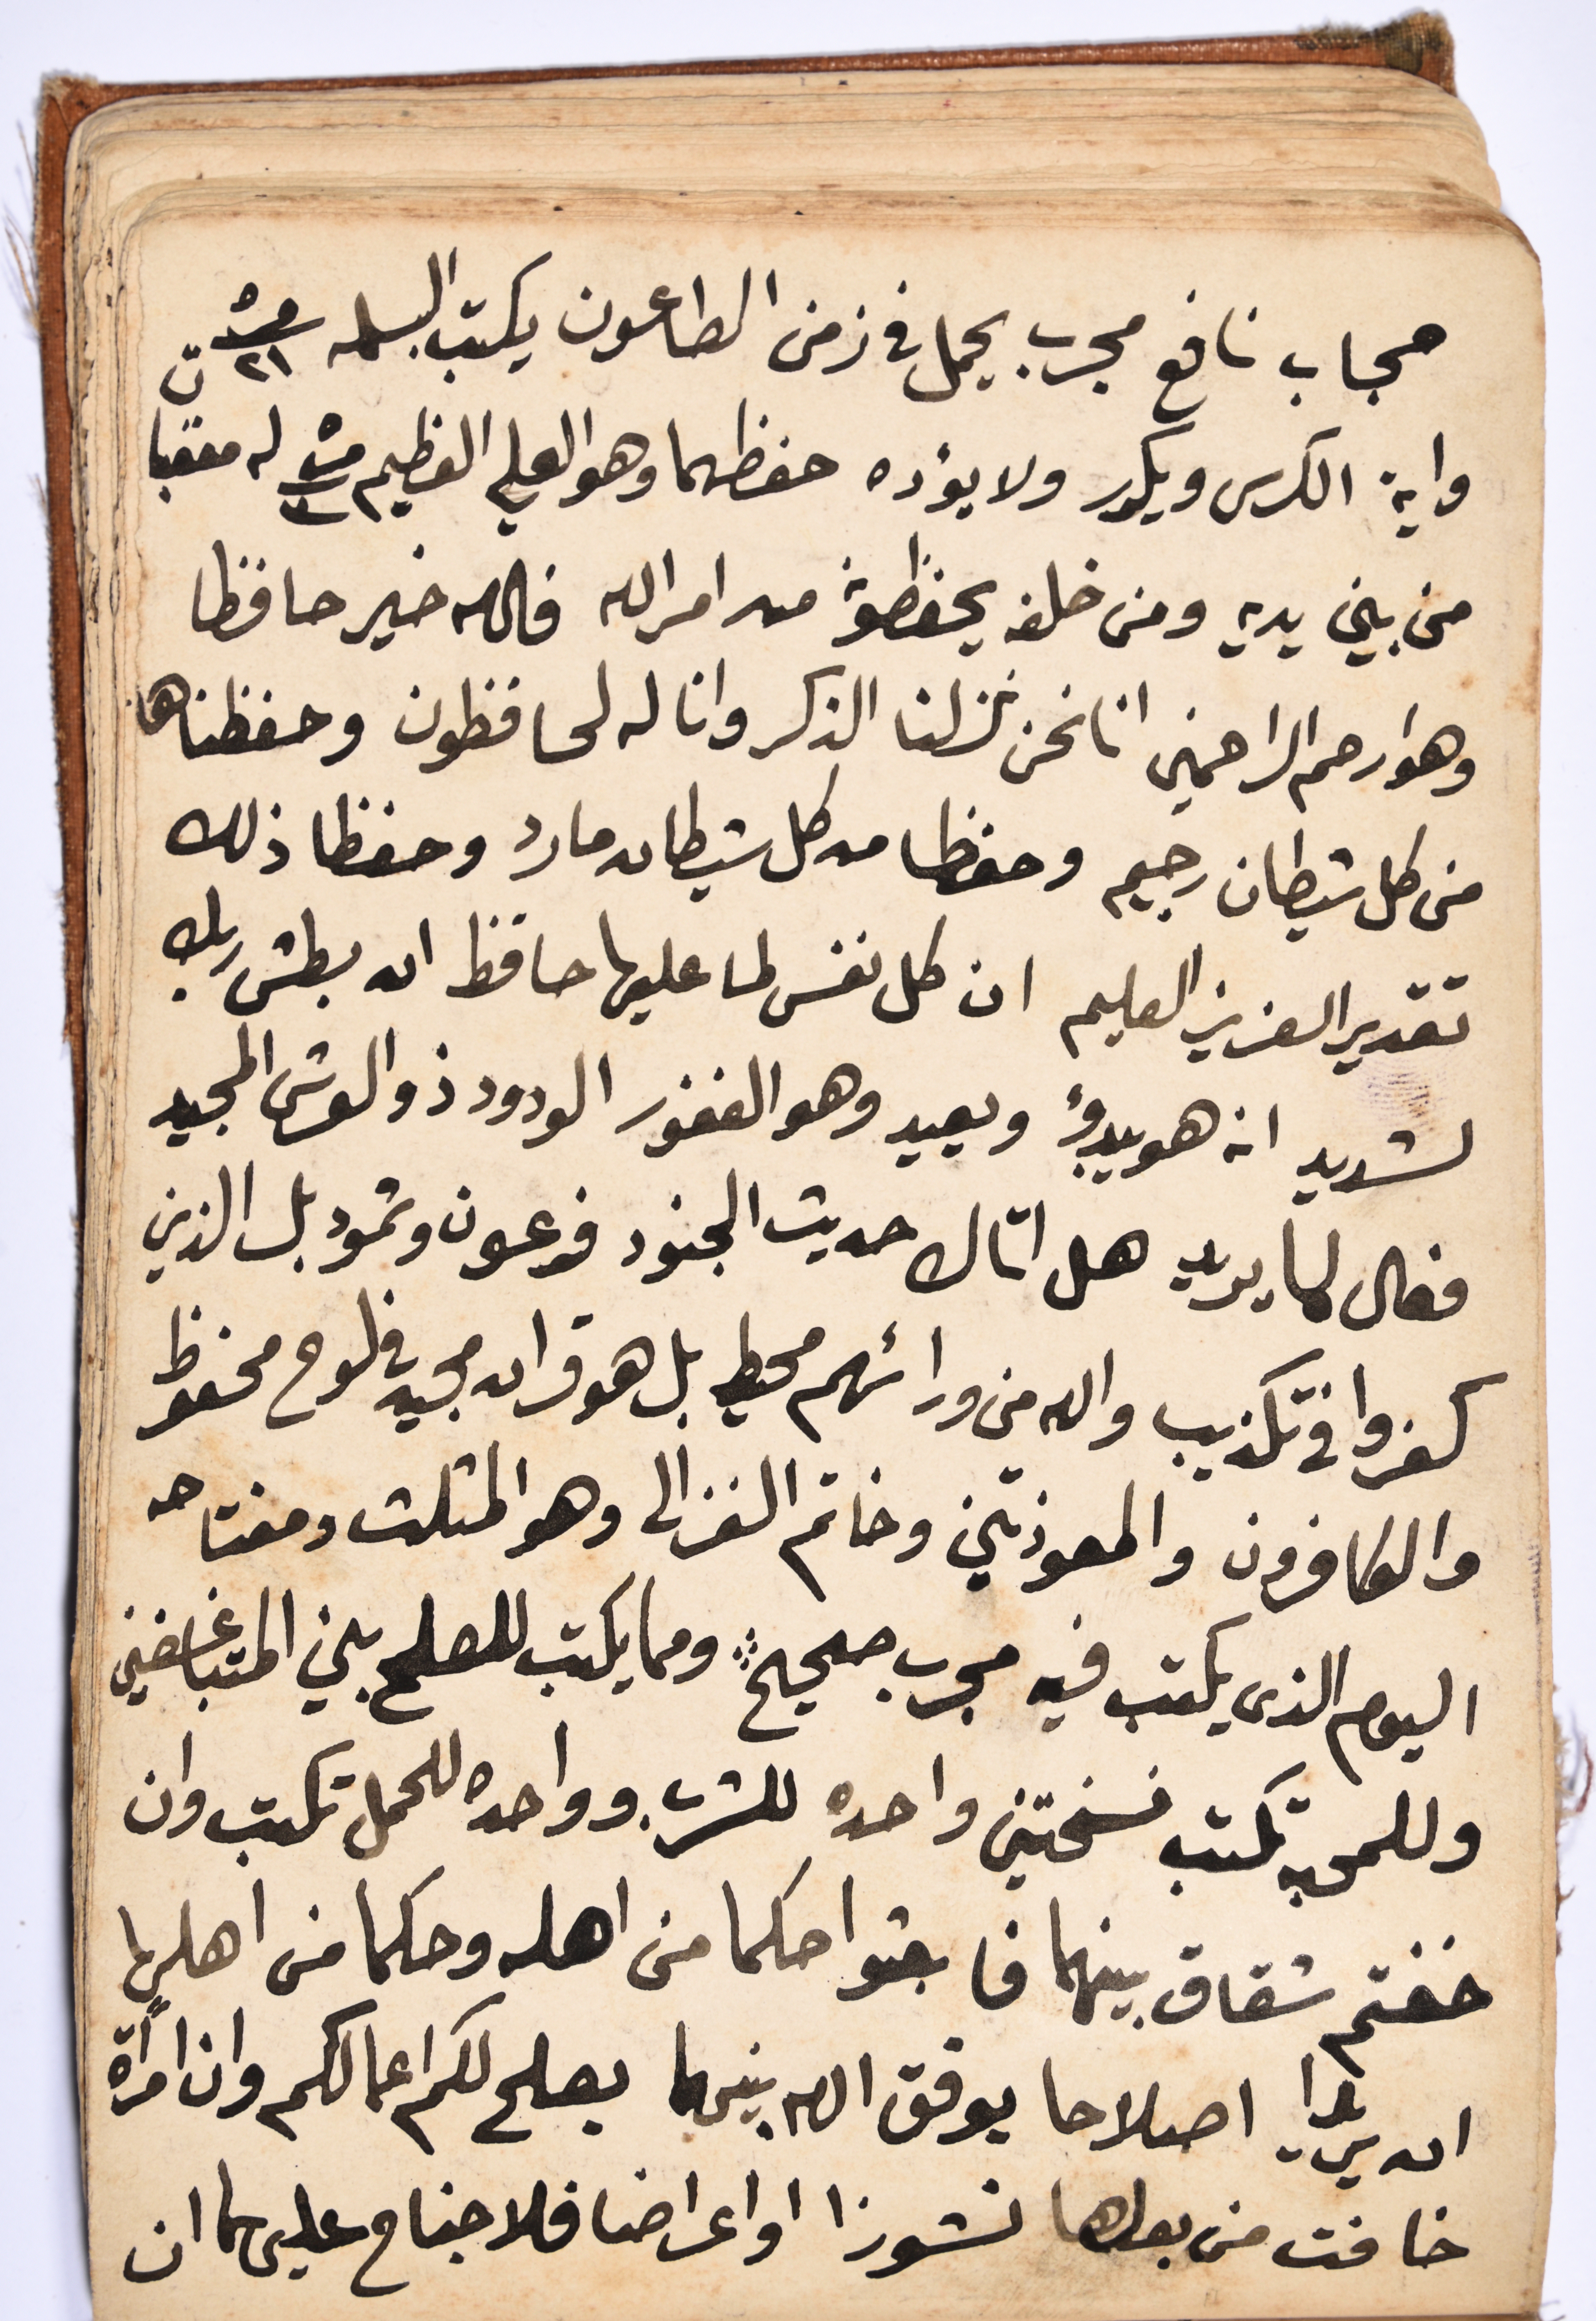 حجاب نافع مجرب يحمل في زمن الطاعون يكتب البسمله مرة ٢١
واية الكرسى ويكرر ولا يؤده حفظهما وهو العلي العظيم مرة له معقبات
من بين يديه ومن خلفه يحفظونه من امر الله فالله خير حافظا
وهو ارحم الراحمين انا نحن نزلنا الذكر وانا له لحافظون وحفظناها
من كل شيطان رجيم وحفظا من كل شيطان مارد وحفظا ذلك
تقدير العزيز العليم ان كل نفس لما عليها حافظ ان بطش ربك
لشديد انه هو يبدؤ ويعيد وهو الغفور الودود ذو العرش المجيد
فعال لما يريد هل اتاك حديث الجنود فرعون وثمود بل الذين
كفروا في تكذيب والله من ورائهم محيط بل هو قران مجيد في لوح محفوظ
والكافرون والمعوذتين وخاتم الغزالى وهو المثلث ومفتاحه
اليوم الذى يكتب فيه مجرب صحيح ومما يكتب للصلح بين المتباغضين
وللمحبه تكتب نسختين واحده للشرب وواحده للحمل تكتب وان
خفتم شقاق بينهما فابعثوا حكما من اهله وحكما من اهلها
ان يريدا اصلاحا يوفق الله بينهما يصلح لكم اعمالكم وان امرأة
خافت من بعلها نشوزا او اعراضا فلا جناح عليهما ان